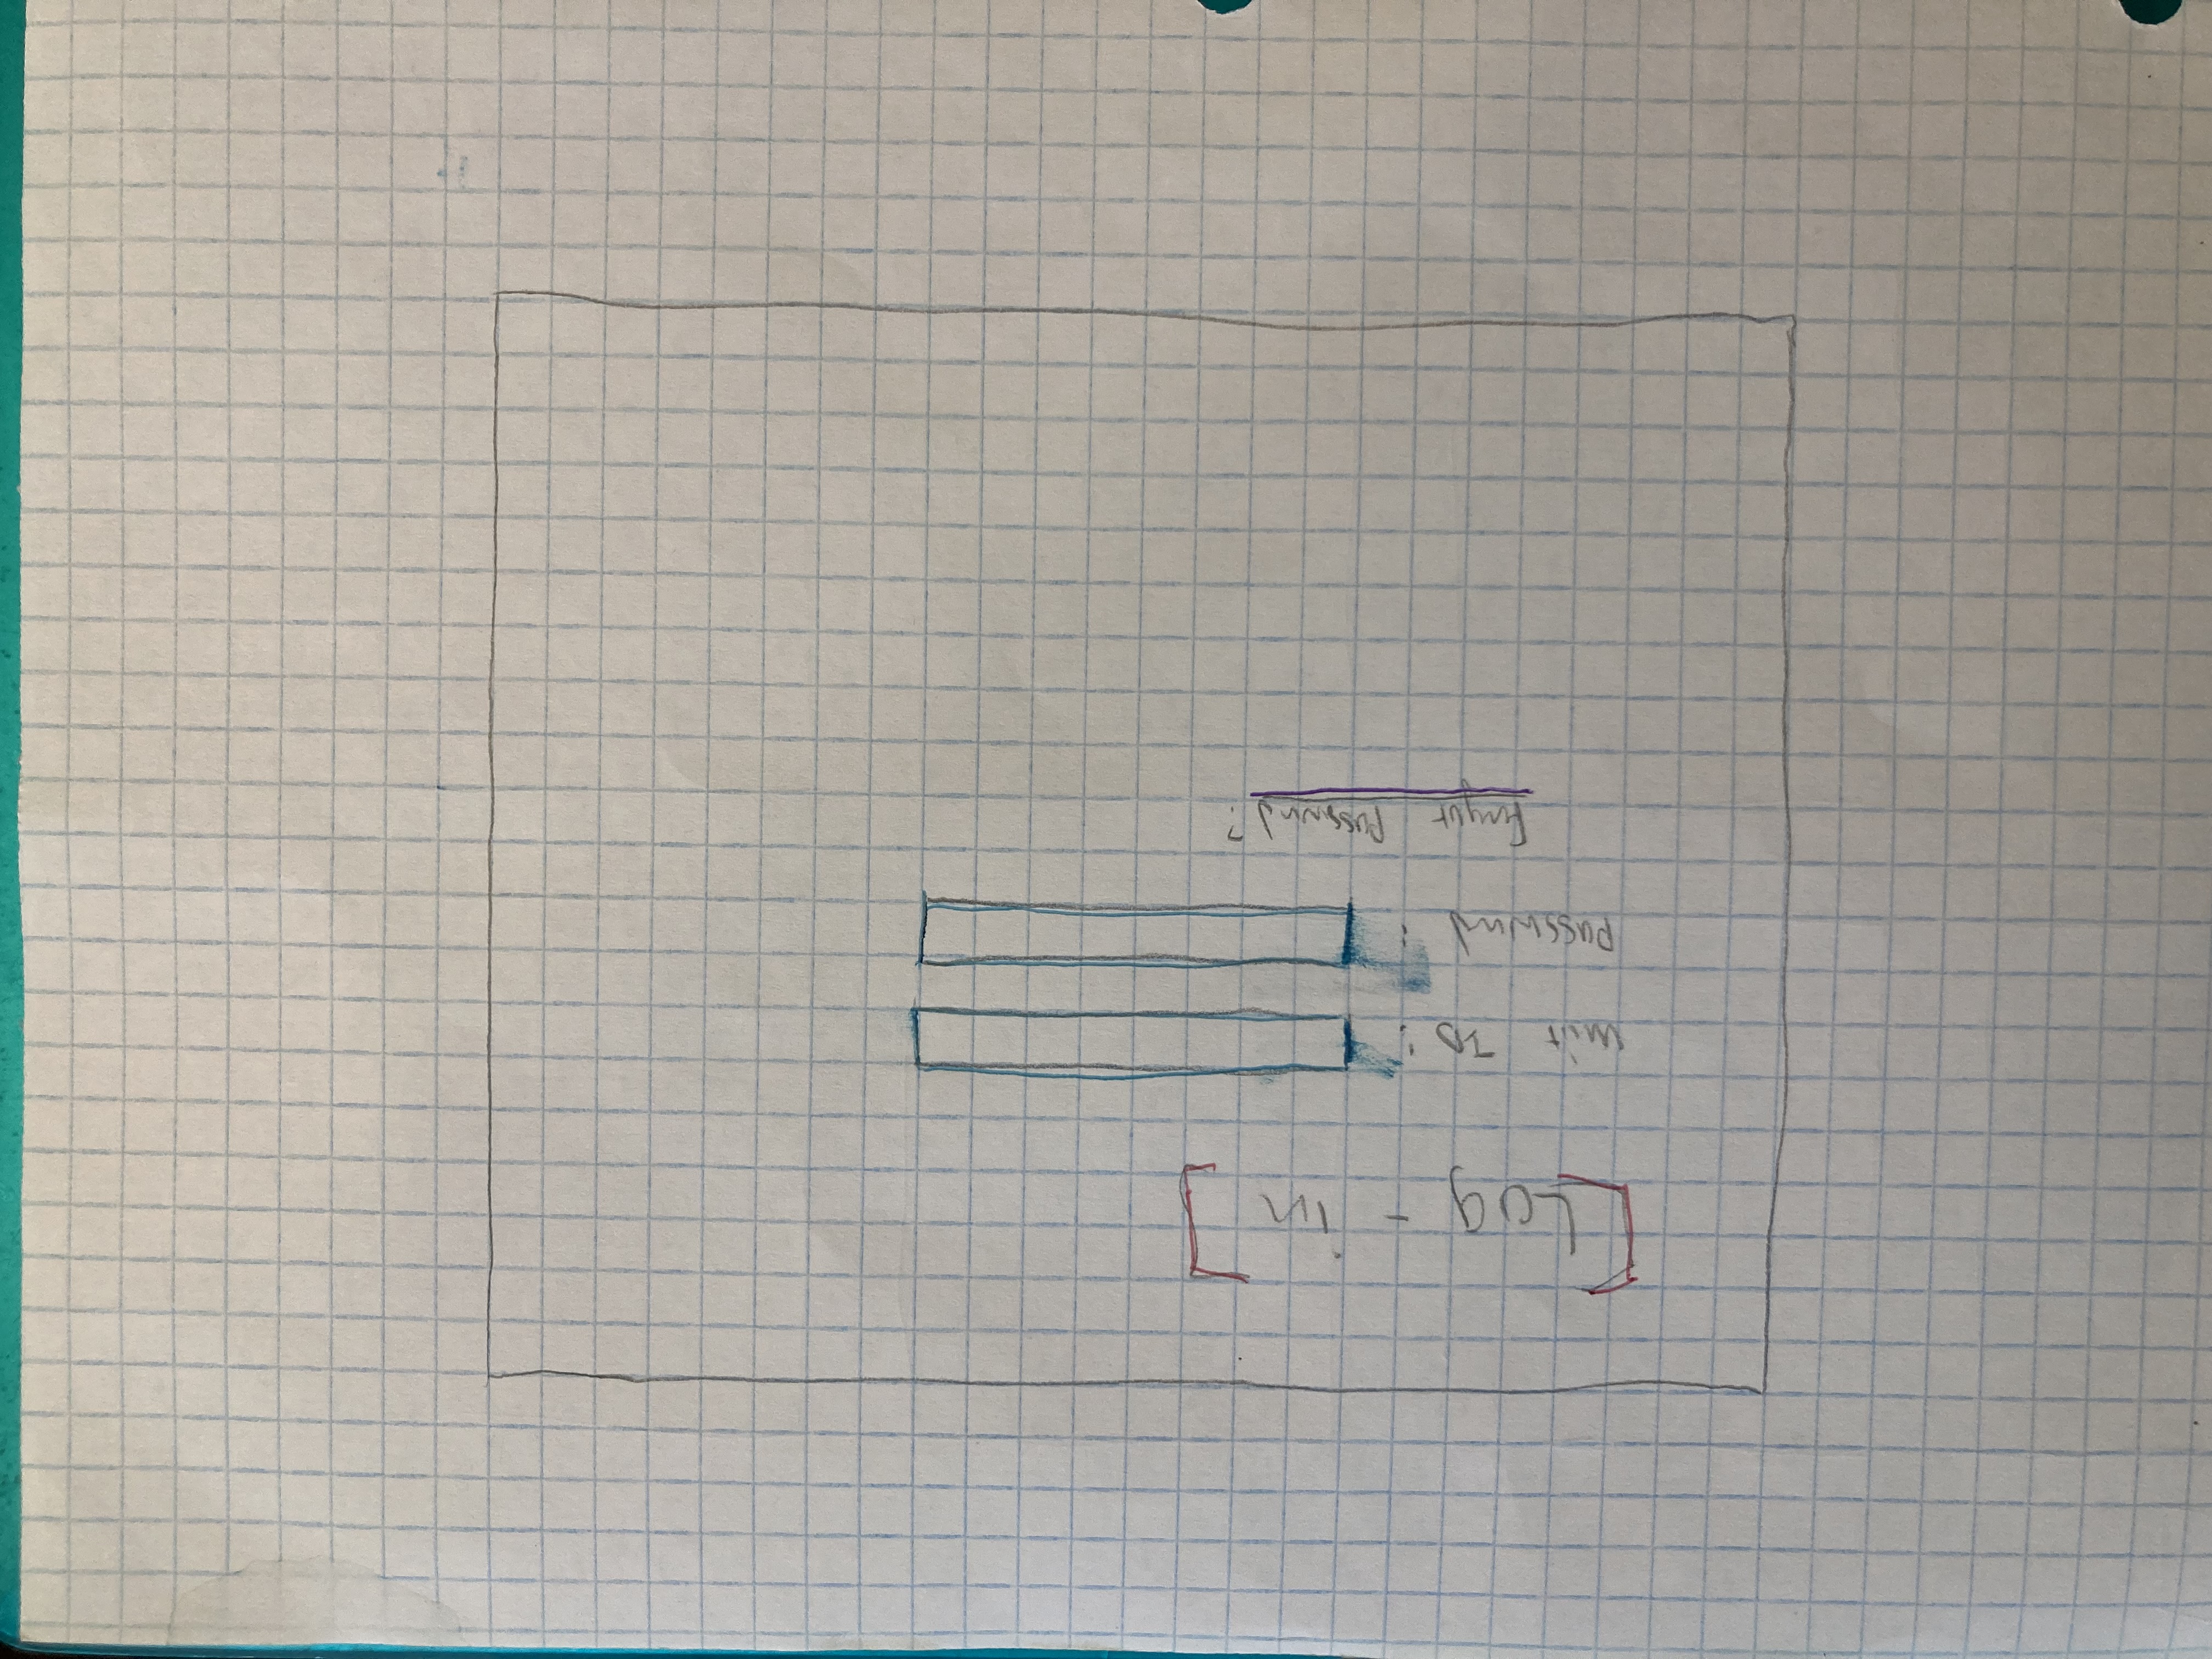 [Log - in]
unit ID :
password :
Forgot Password?